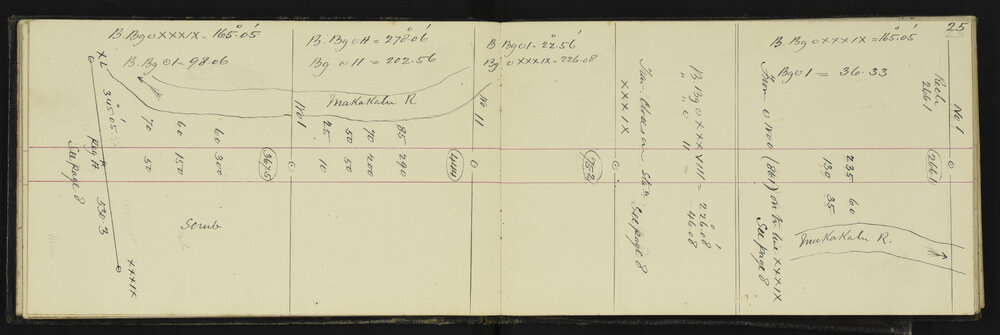 25
B. Bg ○ XXXIX = 165°.05'
B. Bg ○ 1 - 98.06
B. Bg ○ A = 278°.06'
Bg ○ 11 = 202.56
B. Bg ○ 1 . 22°.56'
Bg ○ XXXIX = 226.08
B. Bg ○ XXXIX = 165°.05'
Bg ○ 1 = 36.33
XL
345°.05'
Peg A
530.3
XXXIX
See page 8
70 50
60 150
60 300
3675
Scrub
Makakahi R
No 1
25 10
50 50
70 200
85 290
444
No 11
752
XXXIX
See page 8
B. Bg ○ XXXVIII = 226°.08'
" ○ 11 = 46.08
From ○ No 0 (861) on tr. line XXXIX
See page 8
130 35
235 60
Makakahi R.
2661
2661
No 1